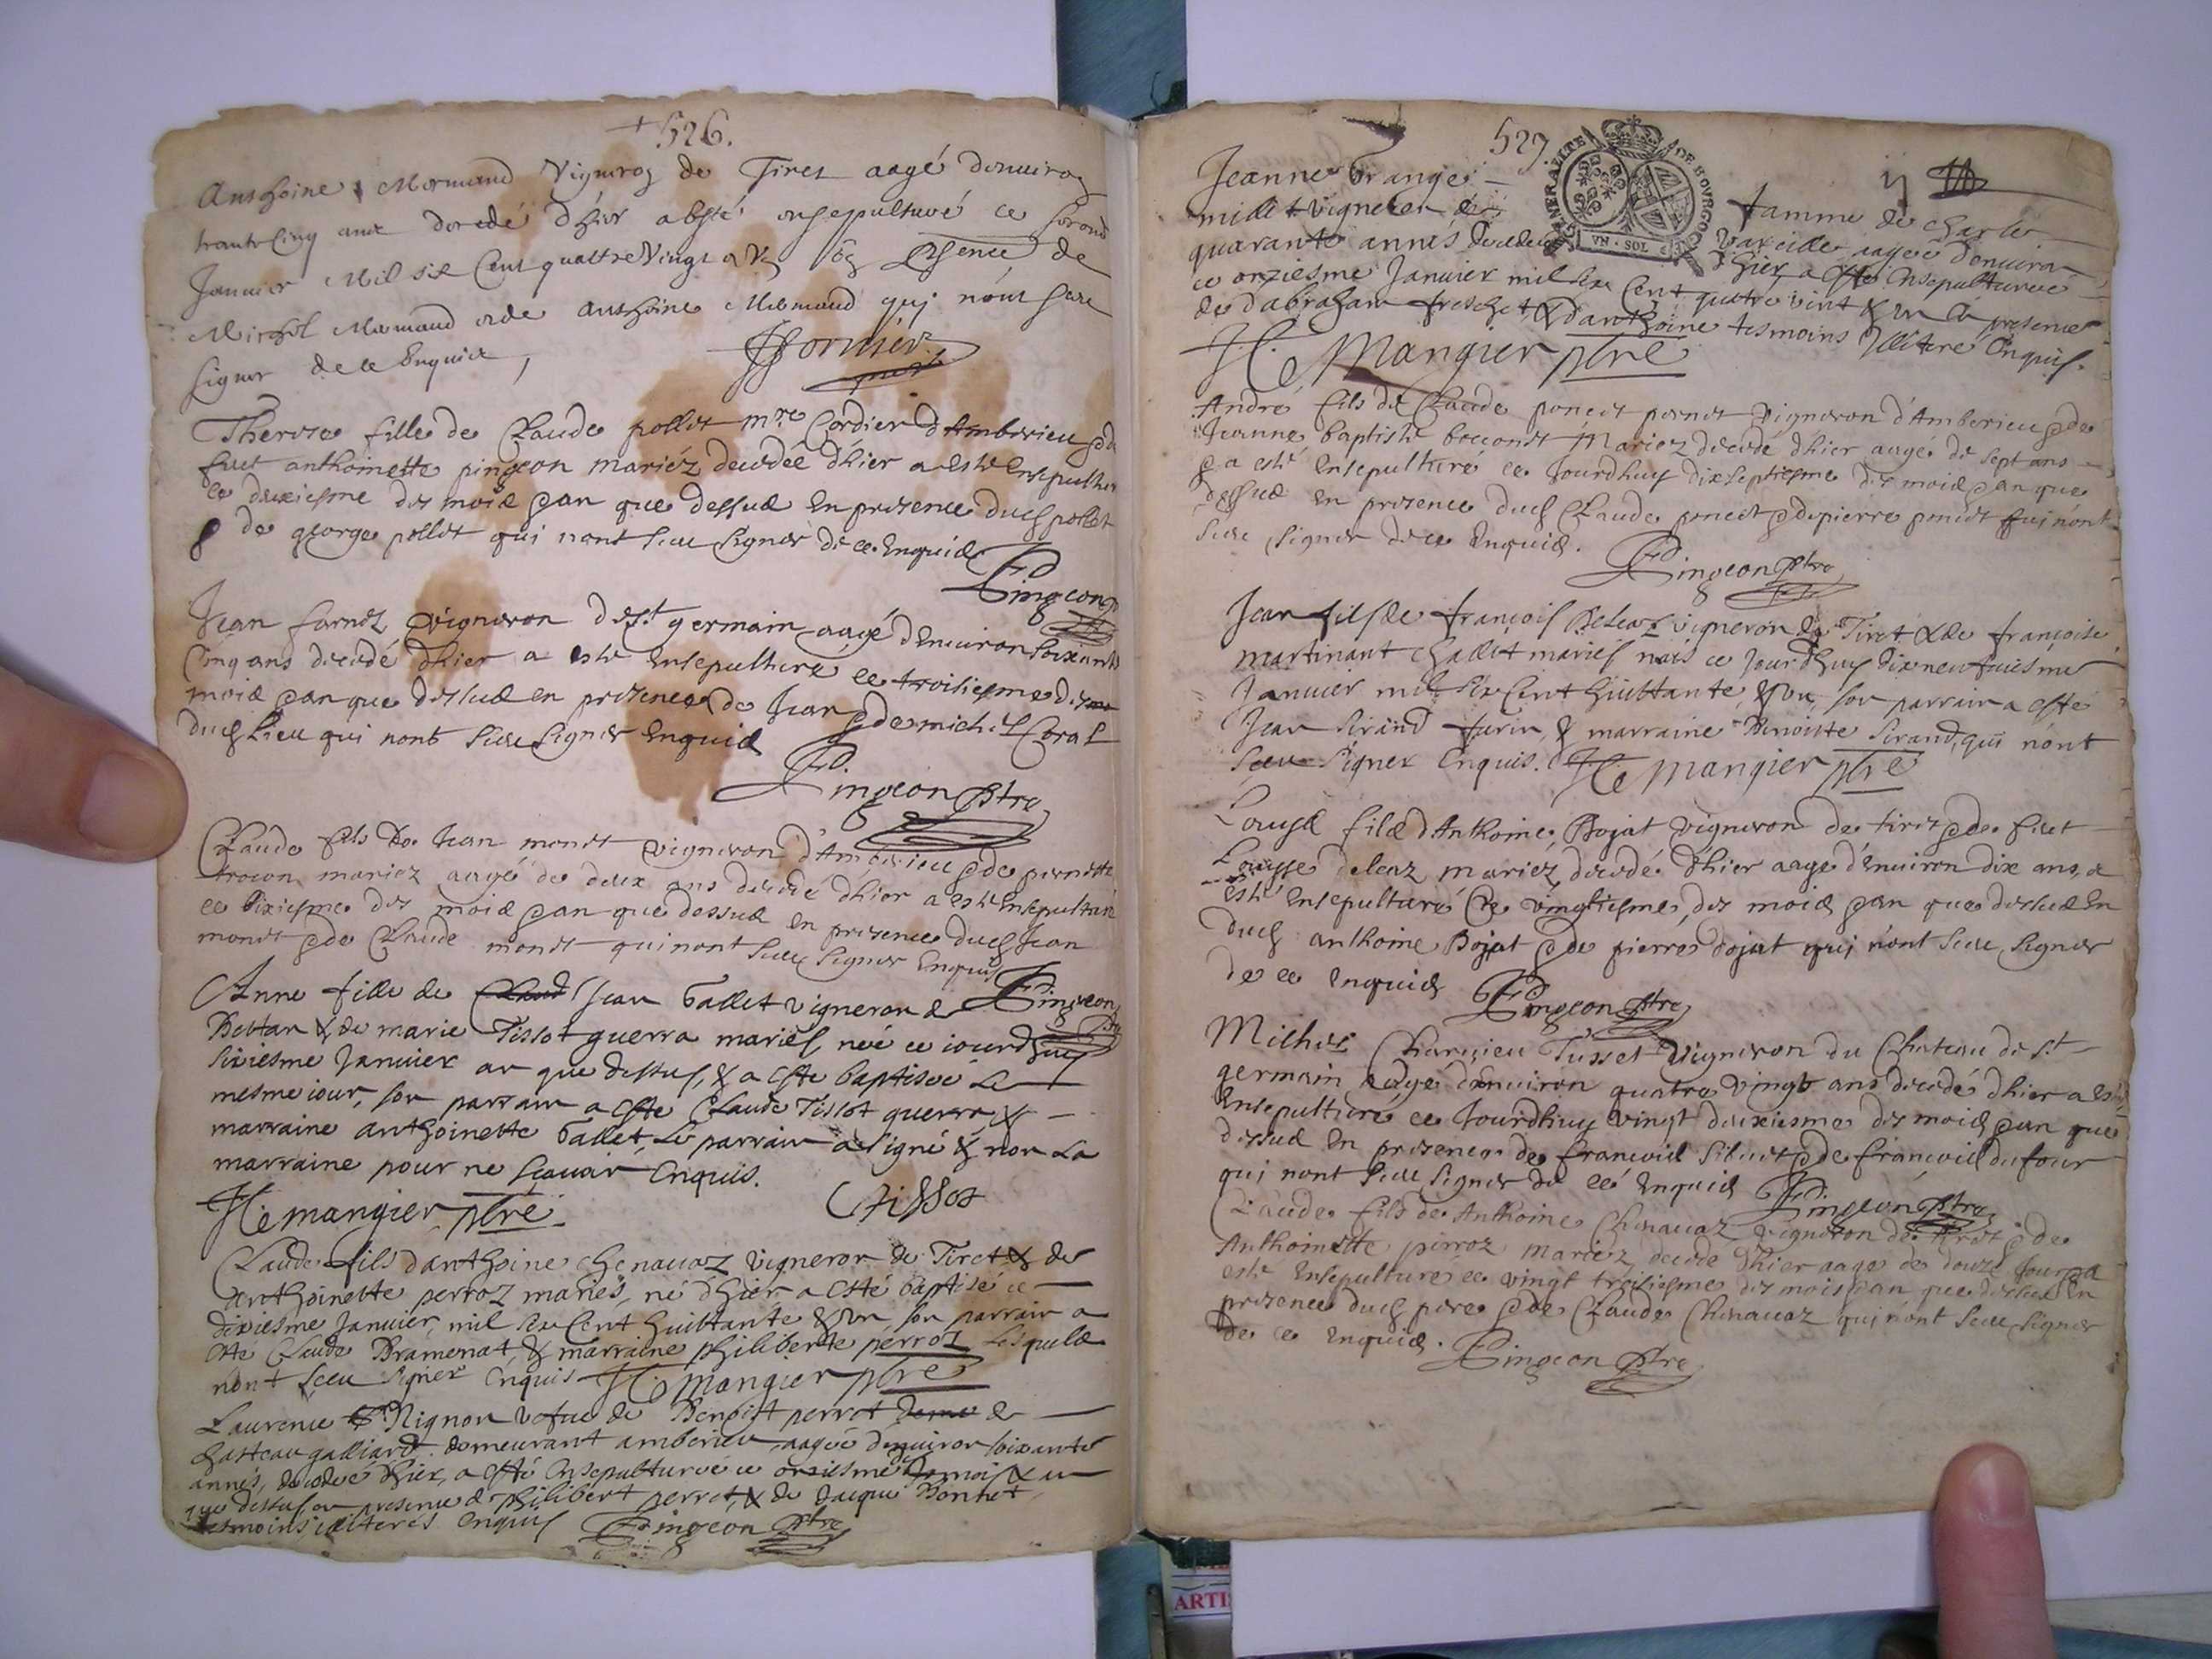 + 526.
Anthoine Mormand Vigneron de Tiret aagé denuiron
trante Cinq ans decedé dhier a esté ensepulturé ce second
Januier Mil six Cent quattre Vingt & Vng en presence de
Michel Mormand & de Anthoine Mormand qui nont sceu
signer de ce Enquis,
Therese fille de Claude pollet mre Cordier d'Amberieu & de
fuet anthoinette pingeon mariéz decedée dhier a esté Ensepulturé
ce deuxiesme des mois & an que dessus En presence dud pollet
& de george pollet qui nont sceu signer de ce Enquis
Pingeon
Jean farnet vigneron de St germain aagé d'Enuiron soixante
Cinq ans decedé dhier a esté Ensepulturé ce troisiesme des
mois & an que dessus en presence de Jean & de michel Coral
dud Lieu qui nont sceu signer Enquis
Pingeon ptre
Claude fils de Jean monet vigneron d'Amberieu & de pernette
mariez aagé de deux ans decedé dhier a esté Ensepulturé
ce sixiesme des mois & an que dessus en presence dud Jean
monet & de Claude monet qui nont sceu signer Enquis
Pingeon
Anne fille de Jean Gallet vigneron de
Bettan & de marie Tissot guerra mariés, née ce iourdhuy
sixiesme Januier an que dessus, & a esté baptisée Le
mesme iour, son parrain a esté Claude Tissot guerra &
marraine anthoinette Gallet, Le parrain a signé & non La
marraine pour ne scauoir Enquis.
mangier pbre
CTissot
Claude fils danthoine Chenauaz vigneron de Tiret & de
anthoinette perroz mariés, né dhier a esté baptisé ce
dixiesme Januier, mil six Cent huittante & un, son parrain a
esté Claude Bramenat, & marraine philiberte perroz Lesquels
nont sceu signer Enquis mangier pbre
Laurence Nignon vefue de Benoist perret de
Chasteau galliard demeurant amberieu, aagée denuiron soixante
annés, decedée dhier, a esté Ensepulturée ce onziesme du mois & an
que dessus en presence de philibert perret, & de Jacque Bonnet,
tesmoins illiterés Enquis Pingeon ptre
527.
GENERALITE DE BOVRGOGNE
VN · SOL
Jeanne Grange
millet vigneron de
famme de Charle
quarante annés decedée dhier a esté Ensepulturée
ce onziesme Januier mil six Cent quatre vint & un En presence
de dabraham freschet & danthoine tesmoins illiteré Enquis.
Mangier pbre
André fils de Claude poncet pernet vigneron d'Amberieu & de
Jeanne baptiste bouconet Mariez decedé dhier aagé de sept ans
& a esté Ensepulturé ce Jourdhuy dixseptiesme des mois & an que
dessus en presence dud Claude poncet & de pierre poncet qui nont
sceu signer de ce Enquis.
Pingeon ptre
Jean fils de françois Deleaz vigneron de Tiret & de françoise
martinant Challet mariés nais ce Jourdhuy dix neufuiesme
Januier mil six Cent huittante, & un, son parrain a esté
Jean Sirand Jurin, & marraine Benoitte Sirand, qui nont
sceu signer Enquis. mangier pbre
Louys fils d'Anthoine Bojat vigneron de tiret & de fuet
Louysse deleaz mariez, decedé dhier aagé d'enuiron dix ans, a
esté Ensepulturé Ce vingtiesme, des mois & an que dessus En
dud anthoine Bojat & de pierre bojat qui nont sceu signer
de ce Enquis
Pingeon ptre
Michel Charuieu Tusset vigneron du Chateau de St
germain aagé denuiron quatre vingt ans decedé dhier a esté
Ensepulturé ce Jourdhuy vingt deuxiesme des mois & an que
dessus En presence de francois Sibuet & de francois dufour
qui nont sceu signer de ce Enquis
Pingeon ptre
Claude fils de Anthoine Chenauaz vigneron de tiret & de
Anthoinette perroz mariez decedé dhier aagé de douze Jours a
esté Ensepulturé ce vingt troisiesme des mois & an que dessus En
presence dud pere & de Claude Chenauaz qui nont sceu signer
de ce Enquis.
Pingeon ptre
ARTI